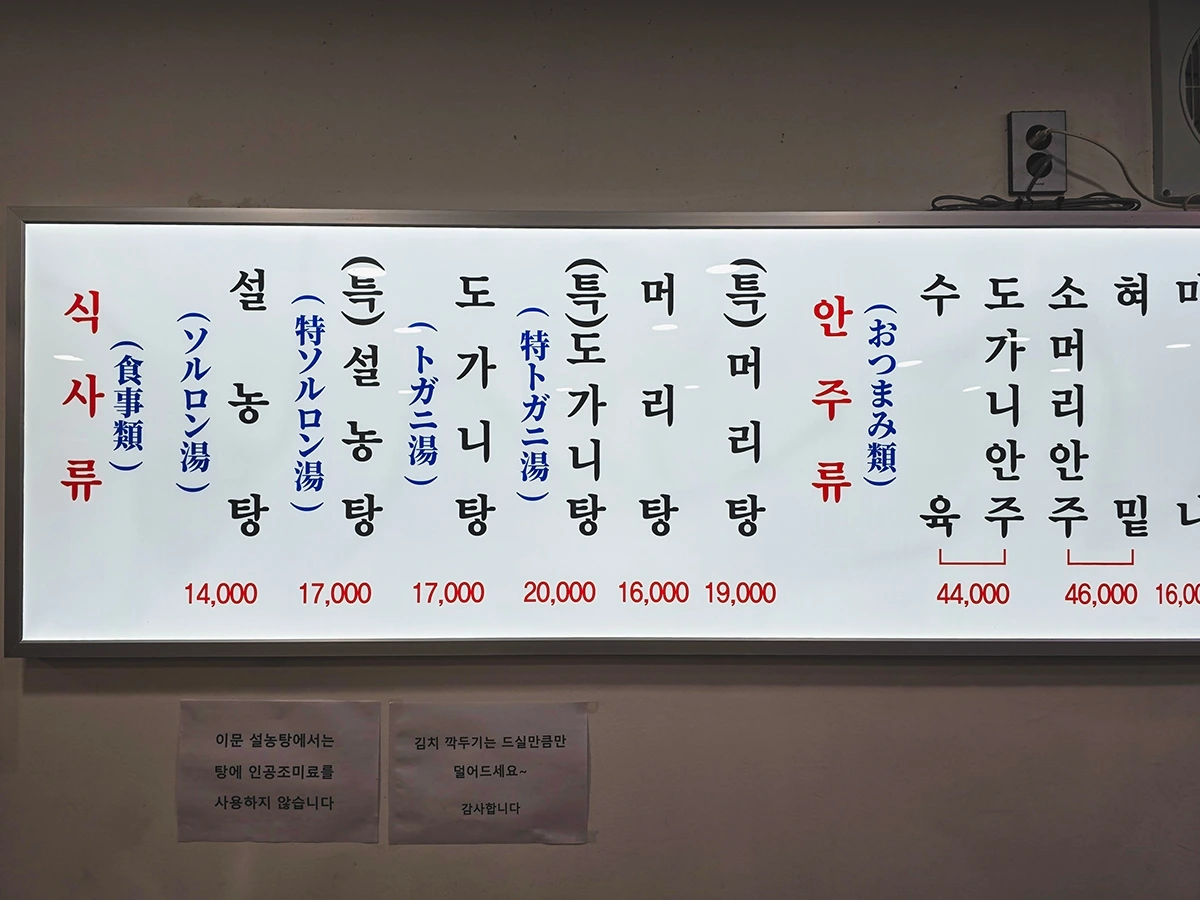 식사류
(食事類)
설농탕
(ソルロン湯)
14,000
(특)설농탕
(特ソルロン湯)
17,000
도가니탕
(トガニ湯)
17,000
(특)도가니탕
(特トガニ湯)
20,000
머리탕
16,000
(특)머리탕
19,000
안주류
(おつまみ類)
수육
도가니안주
44,000
소머리안주
혀밑
46,000
이문 설농탕에서는
탕에 인공조미료를
사용하지 않습니다
김치 깍두기는 드실만큼만
덜어드세요~
감사합니다